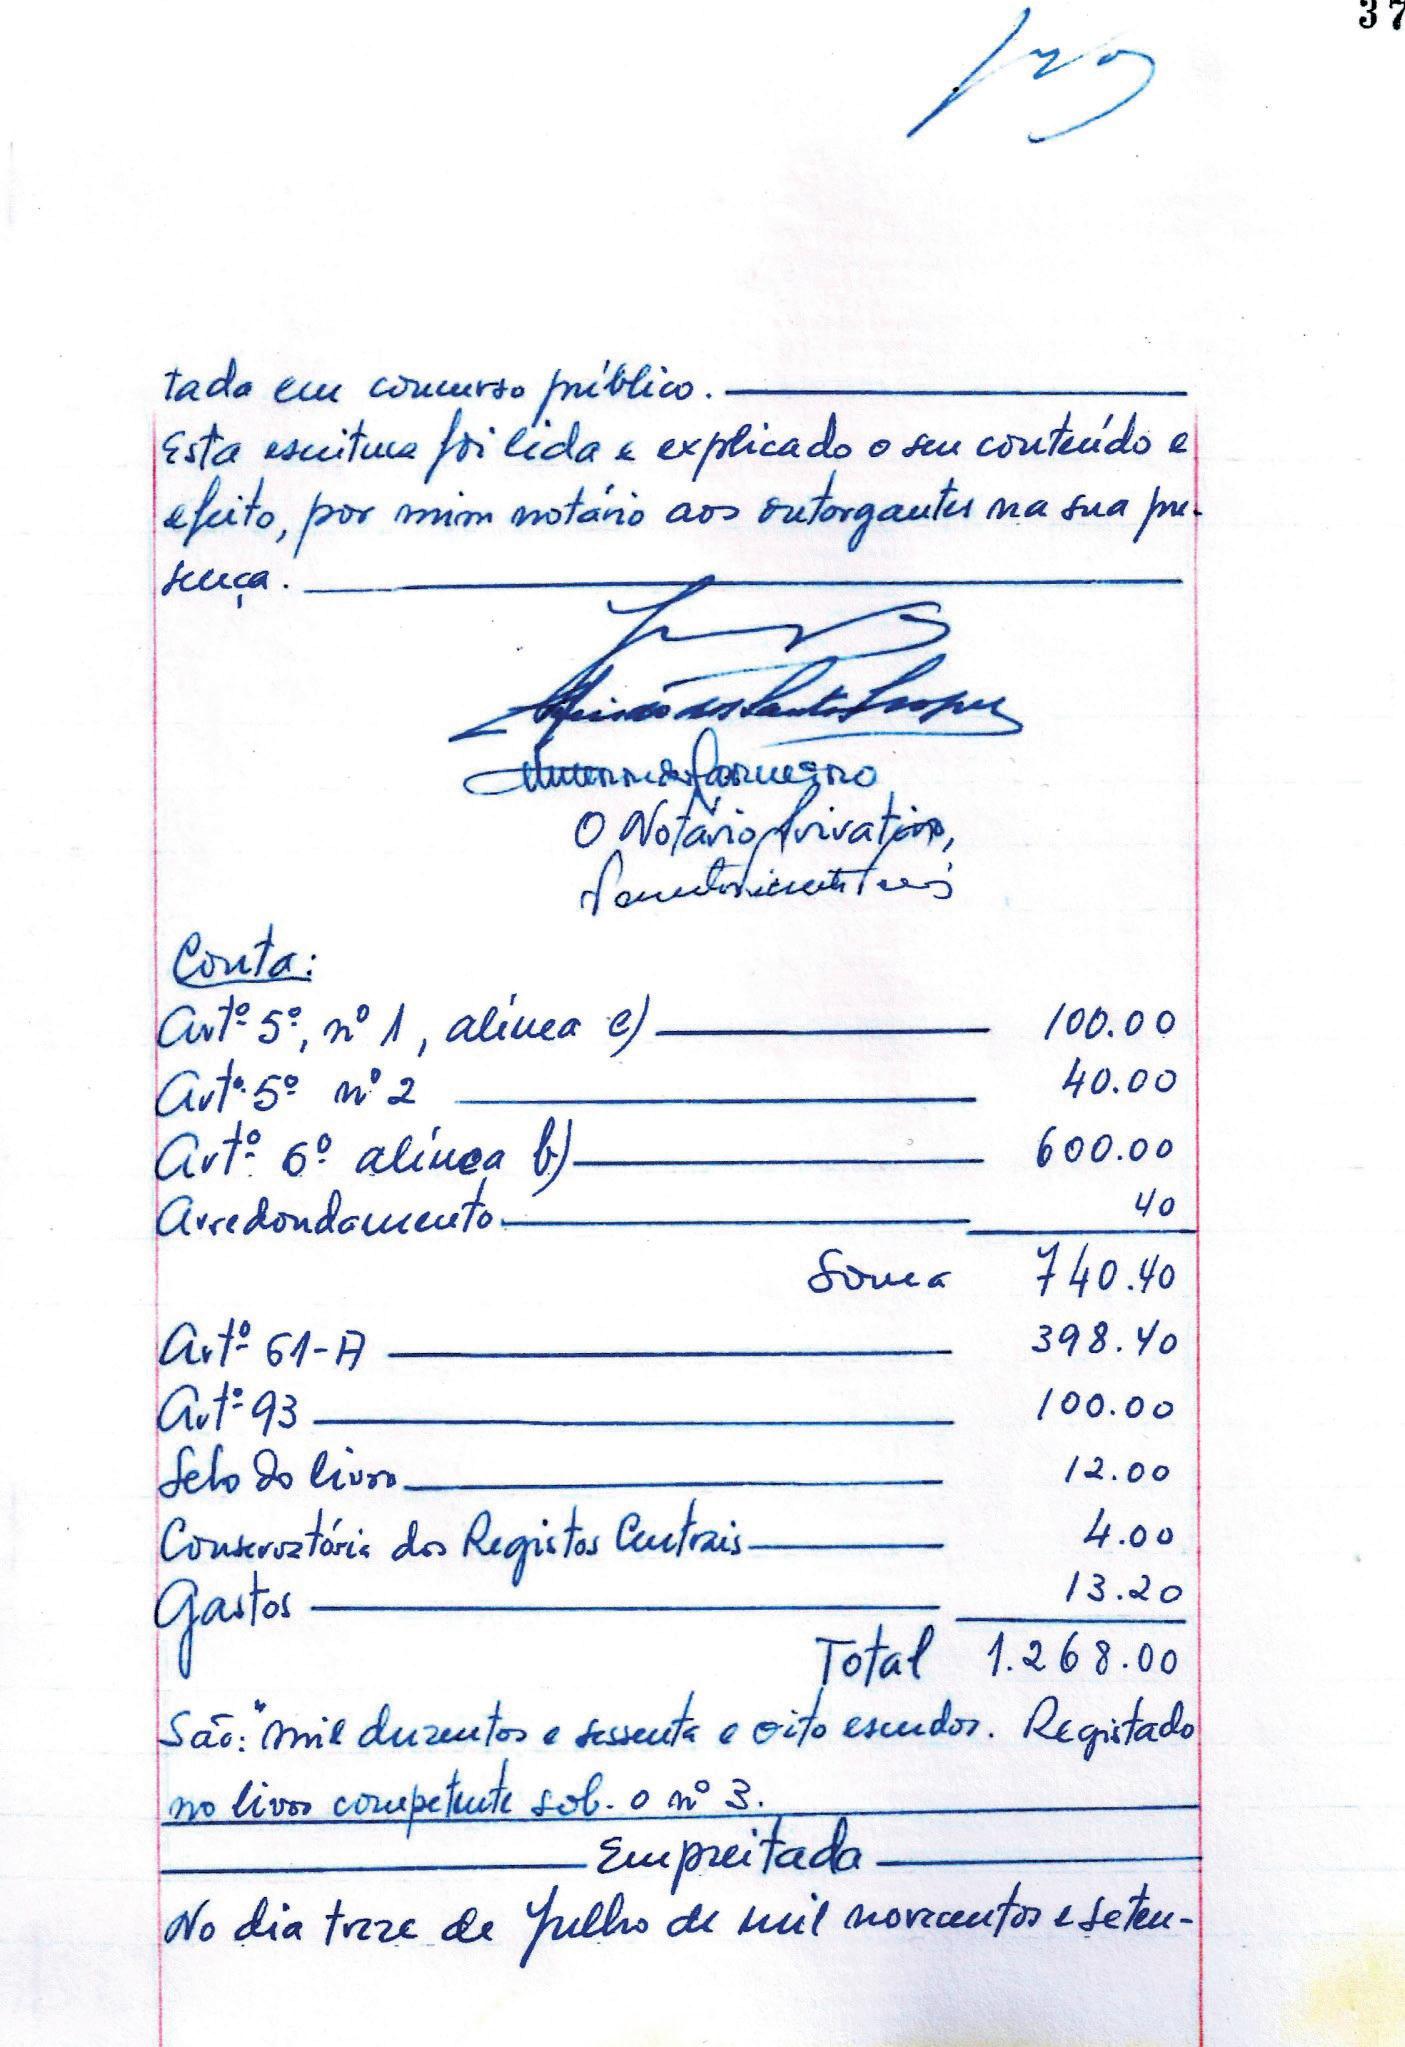 37
tada em concurso público.
Esta escritura foi lida e explicado o seu conteúdo e
efeito, por mim notário aos outorgantes na sua pre-
sença.
dos Santos
Carneiro
O Notário Privativo,
Conta:
Artº 5º, nº 1, alínea c) 100.00
Artº 5º nº 2 40.00
Artº 6º alínea b) 600.00
Arredondamento 40
Soma 740.40
Artº 61-A 398.40
Artº 93 100.00
Selo do livro 12.00
Conservatória dos Registos Centrais 4.00
Gastos 13.20
Total 1.268.00
São: "mil duzentos e sessenta e oito escudos. Registado
no livro competente sob. o nº 3.
Empreitada
No dia treze de Julho de mil novecentos e seten-